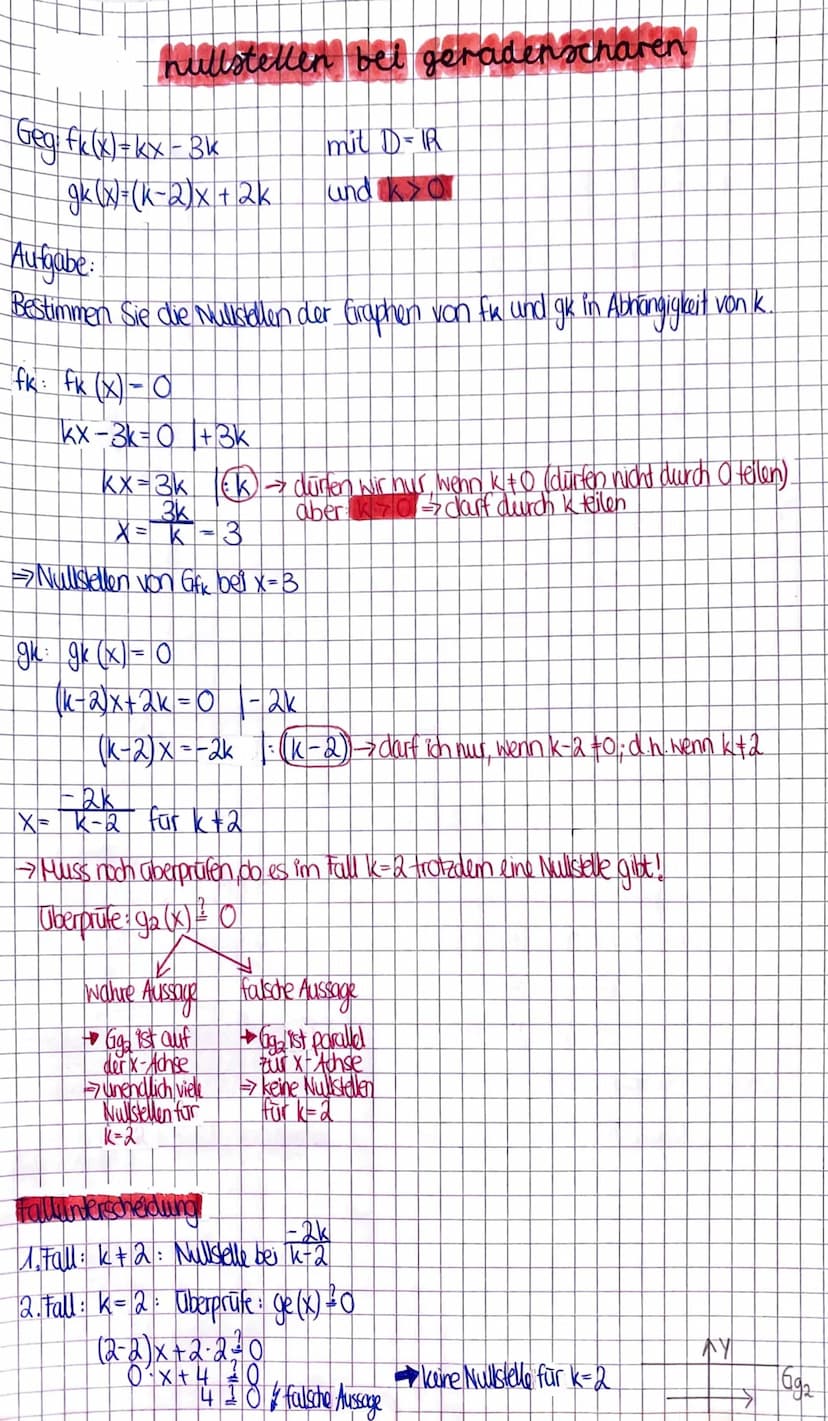 nullstellen bei geradenscharen
Geg: fk(x)=kx-3k mit D=ℝ
gk(x)=(k-2)x+2k und k>0
Aufgabe:
Bestimmen Sie die Nullstellen der Graphen von fk und gk in Abhängigkeit von k.
fk: fk(x)=0
kx-3k=0 |+3k
kx=3k |:k → dürfen wir nur, wenn k≠0 (dürfen nicht durch 0 teilen)
aber k>0 ⇒ darf durch k teilen
x=3k/k=3
⇒Nullstellen von Gfk bei x=3
gk: gk(x)=0
(k-2)x+2k=0 |-2k
(k-2)x=-2k |:(k-2) → darf ich nur, wenn k-2≠0; d.h. wenn k≠2
x=-2k/k-2 für k≠2
→ Muss noch überprüfen, ob es im Fall k=2 trotzdem eine Nullstelle gibt!
Überprüfe: g2(x)≟0
wahre Aussage
→ Gg2 ist auf
der x-Achse
⇒ unendlich viele
Nullstellen für
k=2
falsche Aussage
→ Gg2 ist parallel
zur x-Achse
⇒ keine Nullstellen
für k=2
Fallunterscheidung
1. Fall: k≠2: Nullstelle bei -2k/k-2
2. Fall: k=2: Überprüfe: ge(x)≟0
(2-2)x+2·2≟0
0·x+4≟0
4≟0 ↯ falsche Aussage
→ keine Nullstelle für k=2
Y
Gg2